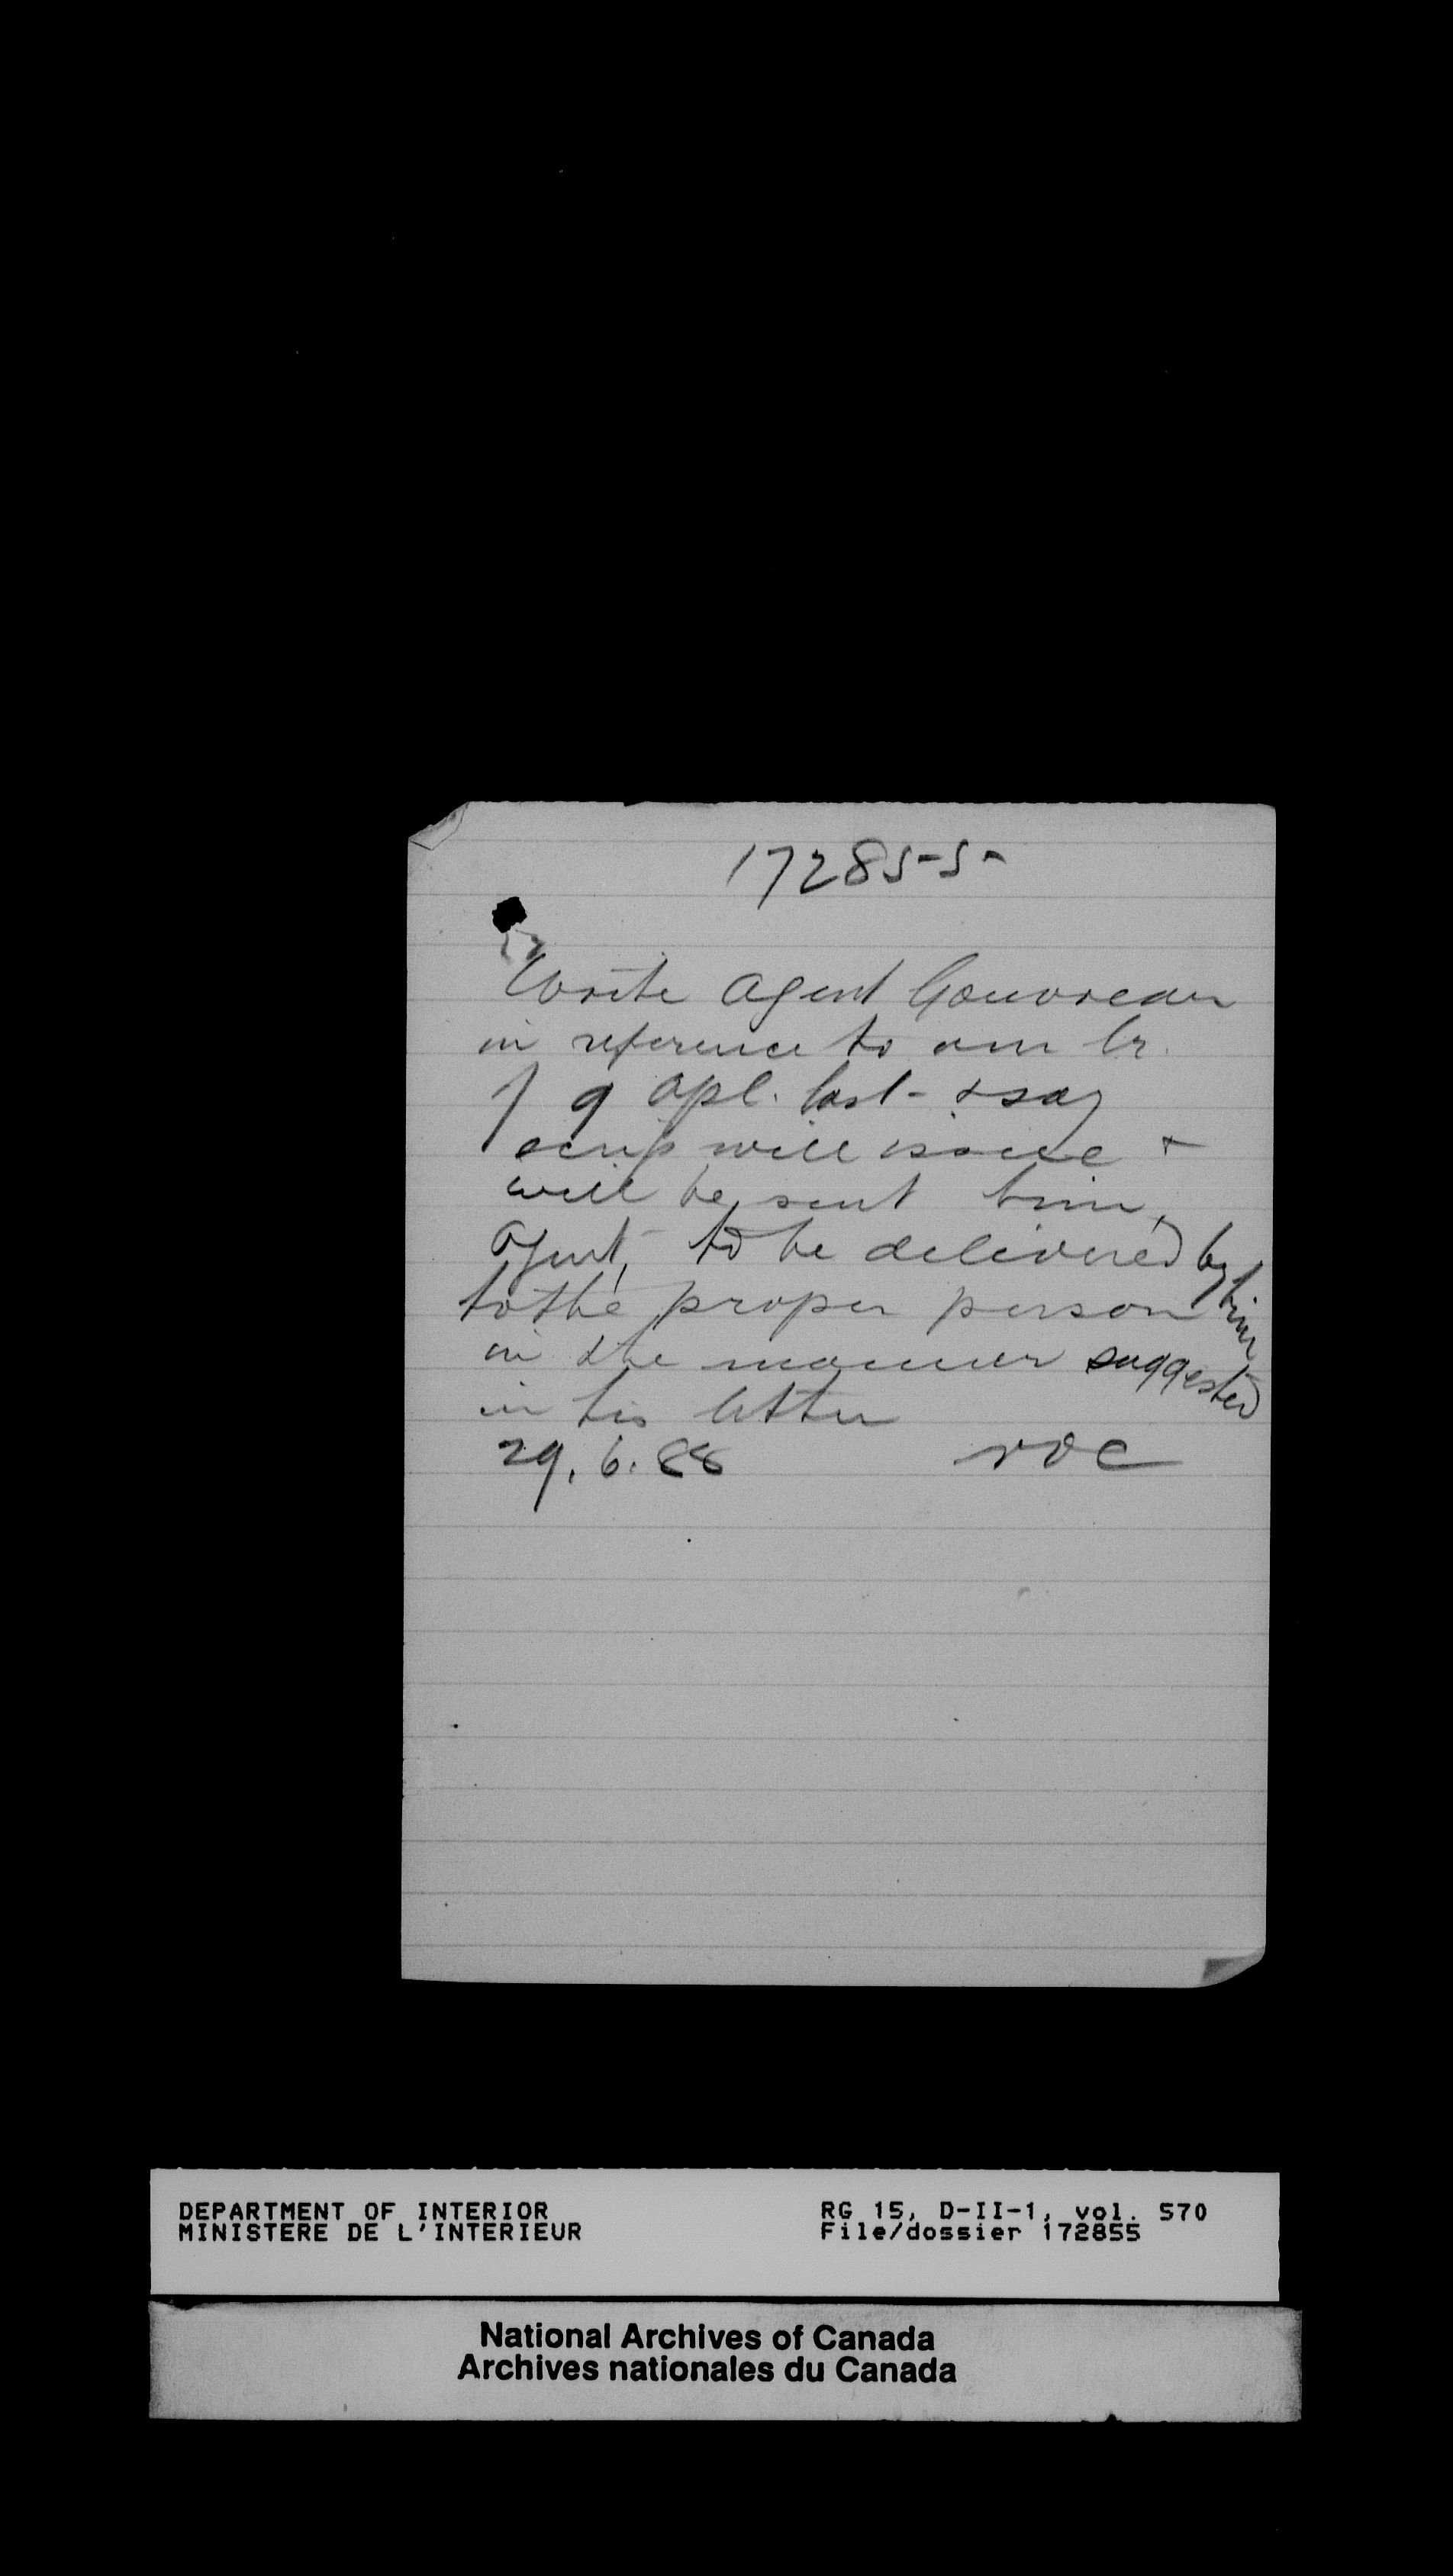 172855
Write Agent Gauvreau
in reference to our lr.
of 9 Apl. last - & say
scrip will issue &
will be sent him,
Agent, to be delivered by him
to the proper person
in the manner suggested
in his letter
29.6.88
DEPARTMENT OF INTERIOR
MINISTERE DE L'INTERIEUR
RG 15, D-II-1, vol. 570
File/dossier 172855
National Archives of Canada
Archives nationales du Canada